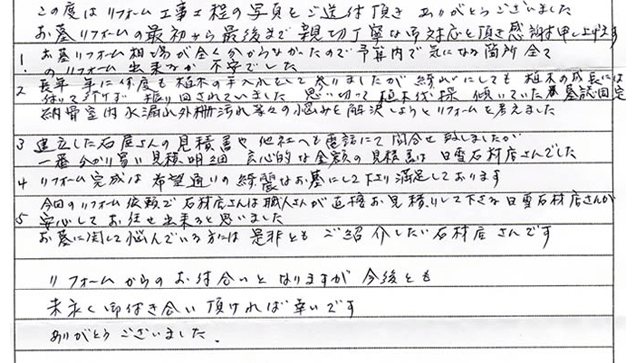 この度はリフォーム工事工程の写真をご送付頂き ありがとうございました
お墓リフォームの最初から最後まで親切丁寧な御対応を頂き感謝申し上げます
1 お墓リフォーム相場が全く分からなかたので予算内で気になる箇所全て
のリフォーム出来るか不安でした
2 長年 年に何度も植木の手入れをして参りましたが 綺麗にしても 植木の成長には
振り回されていました 思い切って植木伐採 傾いていた
納骨室内水漏れ外柵汚れ等々の悩みを解決しようとリフォームを考えました
3 建立した石屋さんの見積書や他社へも電話にて問合せ致しましたが
一番分かり易い見積明細 良心的な金額の見積書は 日雲石材店さんでした
4 リフォーム完成は希望通りの綺麗なお墓にして下さり満足しております
今回のリフォーム依頼で石材店さんは職人さんが直接お見積りして下さる日雲石材店さんが
5 安心してお任せ出来ると思いました
お墓に関して悩んでいる方には是非とも ご紹介したい石材店さんです
リフォームからのお付合いとなりますが今後とも
末永く御付き合い頂ければ幸いです
ありがとうございました.